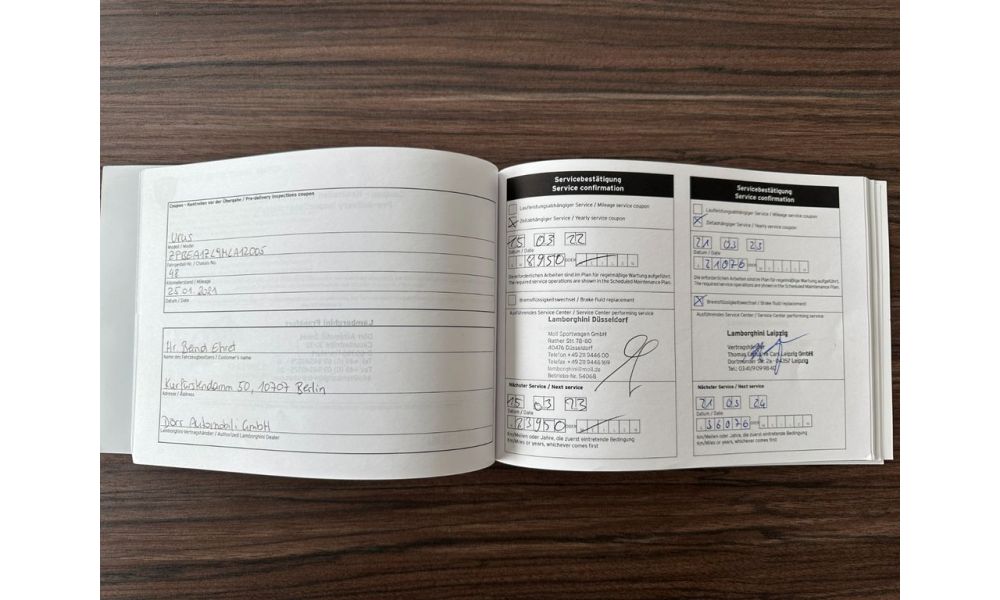 Coupon - Kontrollen vor der Übergabe / Pre-delivery inspections coupon
Urus
Modell / Model
ZPBEA1ZL9MLA12005
Fahrgestell-Nr. / Chassis No.
48
Kilometerstand / Mileage
25.01.2021
Datum / Date
Hr. Bernd Ehret
Name des Fahrzeugbesitzers / Customer's name
Kurfürstendamm 50, 10707 Berlin
Adresse / Address
Dörr Automobili GmbH
Lamborghini-Vertragshändler / Authorized Lamborghini Dealer
Servicebestätigung
Service confirmation
Laufleistungsabhängiger Service / Mileage service coupon
Zeitabhängiger Service / Yearly service coupon
15 03 22
Datum / Date
8950
Die erforderlichen Arbeiten sind im Plan für regelmäßige Wartung aufgeführt.
The required service operations are shown in the Scheduled Maintenance Plan.
Bremsflüssigkeitswechsel / Brake fluid replacement
Ausführendes Service Center / Service Center performing service
Lamborghini Düsseldorf
Moll Sportwagen GmbH
Rather Str. 78-80
40476 Düsseldorf
Telefon +49 211 9446 00
Telefax +49 211 9446 169
lamborghini@moll.de
Betriebs-Nr. 54068
Nächster Service / Next service
15 03 23
Datum / Date
23950
Km/Meilen oder Jahre, die zuerst eintretende Bedingung
Km/Miles or years, whichever comes first
Servicebestätigung
Service confirmation
Laufleistungsabhängiger Service / Mileage service coupon
Zeitabhängiger Service / Yearly service coupon
21 03 23
Datum / Date
21076
Die erforderlichen Arbeiten sind im Plan für regelmäßige Wartung aufgeführt.
The required service operations are shown in the Scheduled Maintenance Plan.
Bremsflüssigkeitswechsel / Brake fluid replacement
Ausführendes Service Center / Service Center performing service
Lamborghini Leipzig
Thomas Cars Leipzig GmbH
Dortmunder Str. 2a · 04357 Leipzig
Tel.: 0341/9 09 98 40
Nächster Service / Next service
21 03 24
Datum / Date
36076
Km/Meilen oder Jahre, die zuerst eintretende Bedingung
Km/Miles or years, whichever comes first